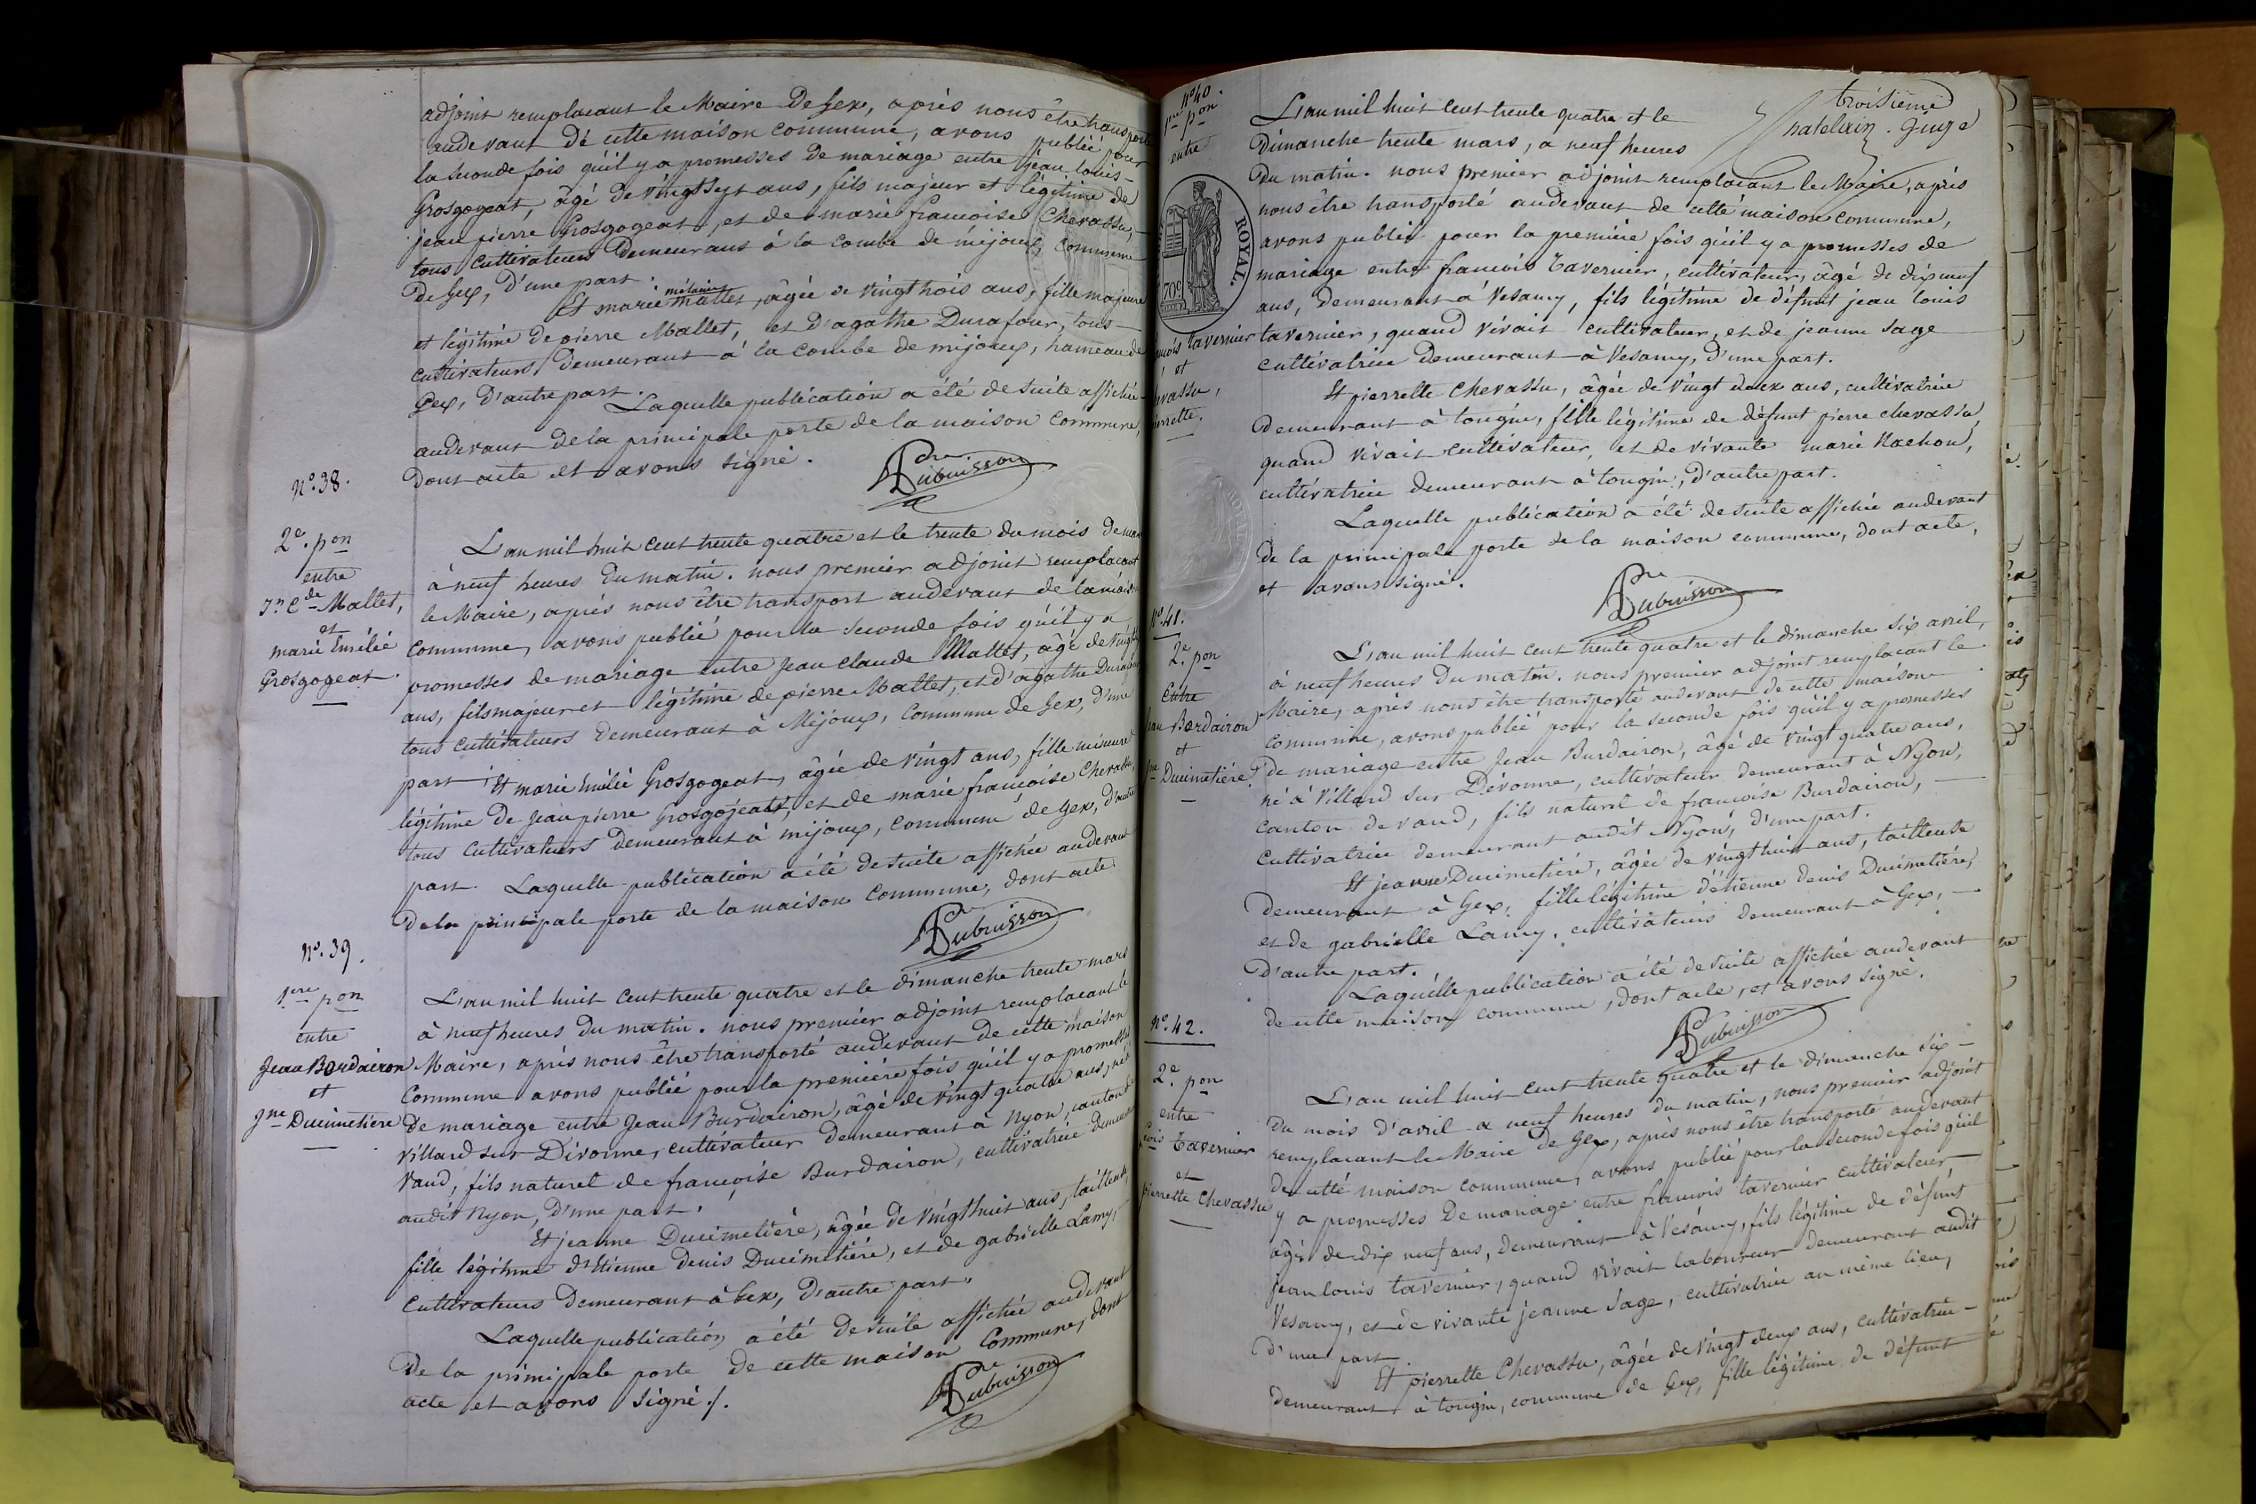 adjoint remplacant le Maire de Gex, après nous être transporté
audevant de cette maison commune, avons publié pour
la seconde fois qu'il y a promesses de mariage entre jean louis
Grosgogeat, âgé de vingt sept ans, fils majeur et légitime de
jean pierre Grosgogeat, et de marie francoise Chevassu,
tous cultivateurs demeurans à la combe de mijoux, commune
de Gex, d'une part.
Et marie mélanie mallet, âgée de vingt trois ans, fille majeure
et légitime de pierre Mallet, et d'agathe Durafour, tous
cultivateurs demeurant à la combe de mijoux, hameau de
Gex, d'autre part.
Laquelle publication a été de suite affichée
audevant de la principale porte de la maison commune,
dont acte et avons signé.
Dubuisson
N.º 38.
2.e pon
entre
Jn Cde Mallet,
et
marie Emélie
Grosgogeat.
L'an mil huit cent trente quatre et le trente du mois de mars
à neuf heures du matin. nous premier adjoint remplacant
le Maire, après nous être transport audevant de la maison
commune, avons publié pour la seconde fois qu'il y a
promesses de mariage entre Jean Claude Mallet, âgé de vingt
ans, fils majeur et légitime de pierre Mallet, et d'agathe Durafour
tous cultivateurs demeurant à Mijoux, commune de Gex, d'une
part. Et marie Emélie Grosgogeat, âgée de vingt ans, fille mineure
légitime de Jean pierre Grosgogeat, et de marie françoise Chevassu,
tous cultivateurs demeurant à mijoux, commune de Gex, d'autre
part. Laquelle publication a été de suite affichée audevant
de la principale porte de la maison commune, dont acte
Dubuisson
N.º 39.
1.ere pon
entre
Jean Bordairon
et
Jne Ducimetière
L'an mil huit cent trente quatre et le dimanche trente mars
à neuf heures du matin. nous premier adjoint remplacant le
Maire, après nous être transporté audevant de cette maison
commune avons publié pour la première fois qu'il y a promesses
de mariage entre Jean Burdairon, âgé de vingt quatre ans, né à
villard sur Divonne, cultivateur demeurant à Nyon, canton de
vaud, fils naturel de françoise Burdairon, cultivatrice demeurant
audit Nyon, d'une part.
Et jeanne Ducimetière, âgée de vingt huit ans, tailleuse,
fille légitime d'Etienne Denis Ducimetière, et de gabrielle Lamy,
cultivateurs demeurant à Gex, d'autre part.
Laquelle publication a été de suite affichée audevant
de la principale porte de cette maison commune, dont
acte et avons signé./.
Dubuisson
troisième
Chatelain. Juge
Nº 40.
1ere pon
entre
ROYAL.
70c
francois tavernier
et
chevassu,
pierrette.
L'an mil huit cent trente quatre et le
dimanche trente mars, a neuf heures
du matin. nous premier adjoint remplacant le Maire, après
nous être transporté audevant de cette maison commune,
avons publié pour la première fois qu'il y a promesses de
mariage entre francois tavernier, cultivateur, âgé de dix neuf
ans, demeurant à Vesancy, fils légitime de défunt jean louis
tavernier, quand vivait cultivateur, et de jeanne sage
cultivatrice demeurant à Vesancy, d'une part.
Et pierrette Chevassu, âgée de vingt deux ans, cultivatrice
demeurant à tougin, fille légitime de défunt pierre chevassu,
quand vivait cultivateur, et de vivante marie Nachon,
cultivatrice demeurant à tougin, d'autre part.
Laquelle publication a été de suite affichée audevant
de la principale porte de la maison commune, dont acte,
et avons signé.
Dubuisson
Nº 41.
2.e pon
Entre
Jean Bordairon
et
Jne Ducimetière
L'an mil huit cent trente quatre et le dimanche six avril,
à neuf heures du matin. nous premier adjoint remplacant le
Maire, après nous être transporté audevant de cette maison
commune, avons publié pour la seconde fois qu'il y a promesses
de mariage entre Jean Burdairon, âgé de vingt quatre ans,
né à Villard sur Divonne, cultivateur demeurant à Nyon,
canton de vaud, fils naturel de francoise Burdairon,
cultivatrice demeurant audit Nyon, d'une part.
Et jeanne Ducimetière, âgée de vingt huit ans, tailleuse
demeurant à Gex, fille légitime d'étienne denis Ducimetière,
et de gabrielle Lamy, cultivateurs demeurant à Gex,
d'autre part.
Laquelle publication a été de suite affichée audevant
de cette maison commune, dont acte, et avons signé.
Dubuisson
Nº 42.
2.e pon
entre
fcois Tavernier
et
pierrette Chevassu
L'an mil huit cent trente quatre et le dimanche six
du mois d'avril a neuf heures du matin, nous premier adjoint
remplacant le Maire de Gex, après nous être transporté audevant
de cette maison commune, avons publié pour la seconde fois qu'il
y a promesses de mariage entre francois tavernier cultivateur,
âgé de dix neuf ans, demeurant à Vesancy, fils légitime de défunt
jean louis tavernier, quand vivait laboureur demeurant audit
Vesancy, et de vivante jeanne sage, cultivatrice au même lieu,
d'une part.
Et pierrette Chevassu, âgée de vingt deux ans, cultivatrice
demeurant à tougin, commune de Gex, fille légitime de défunt